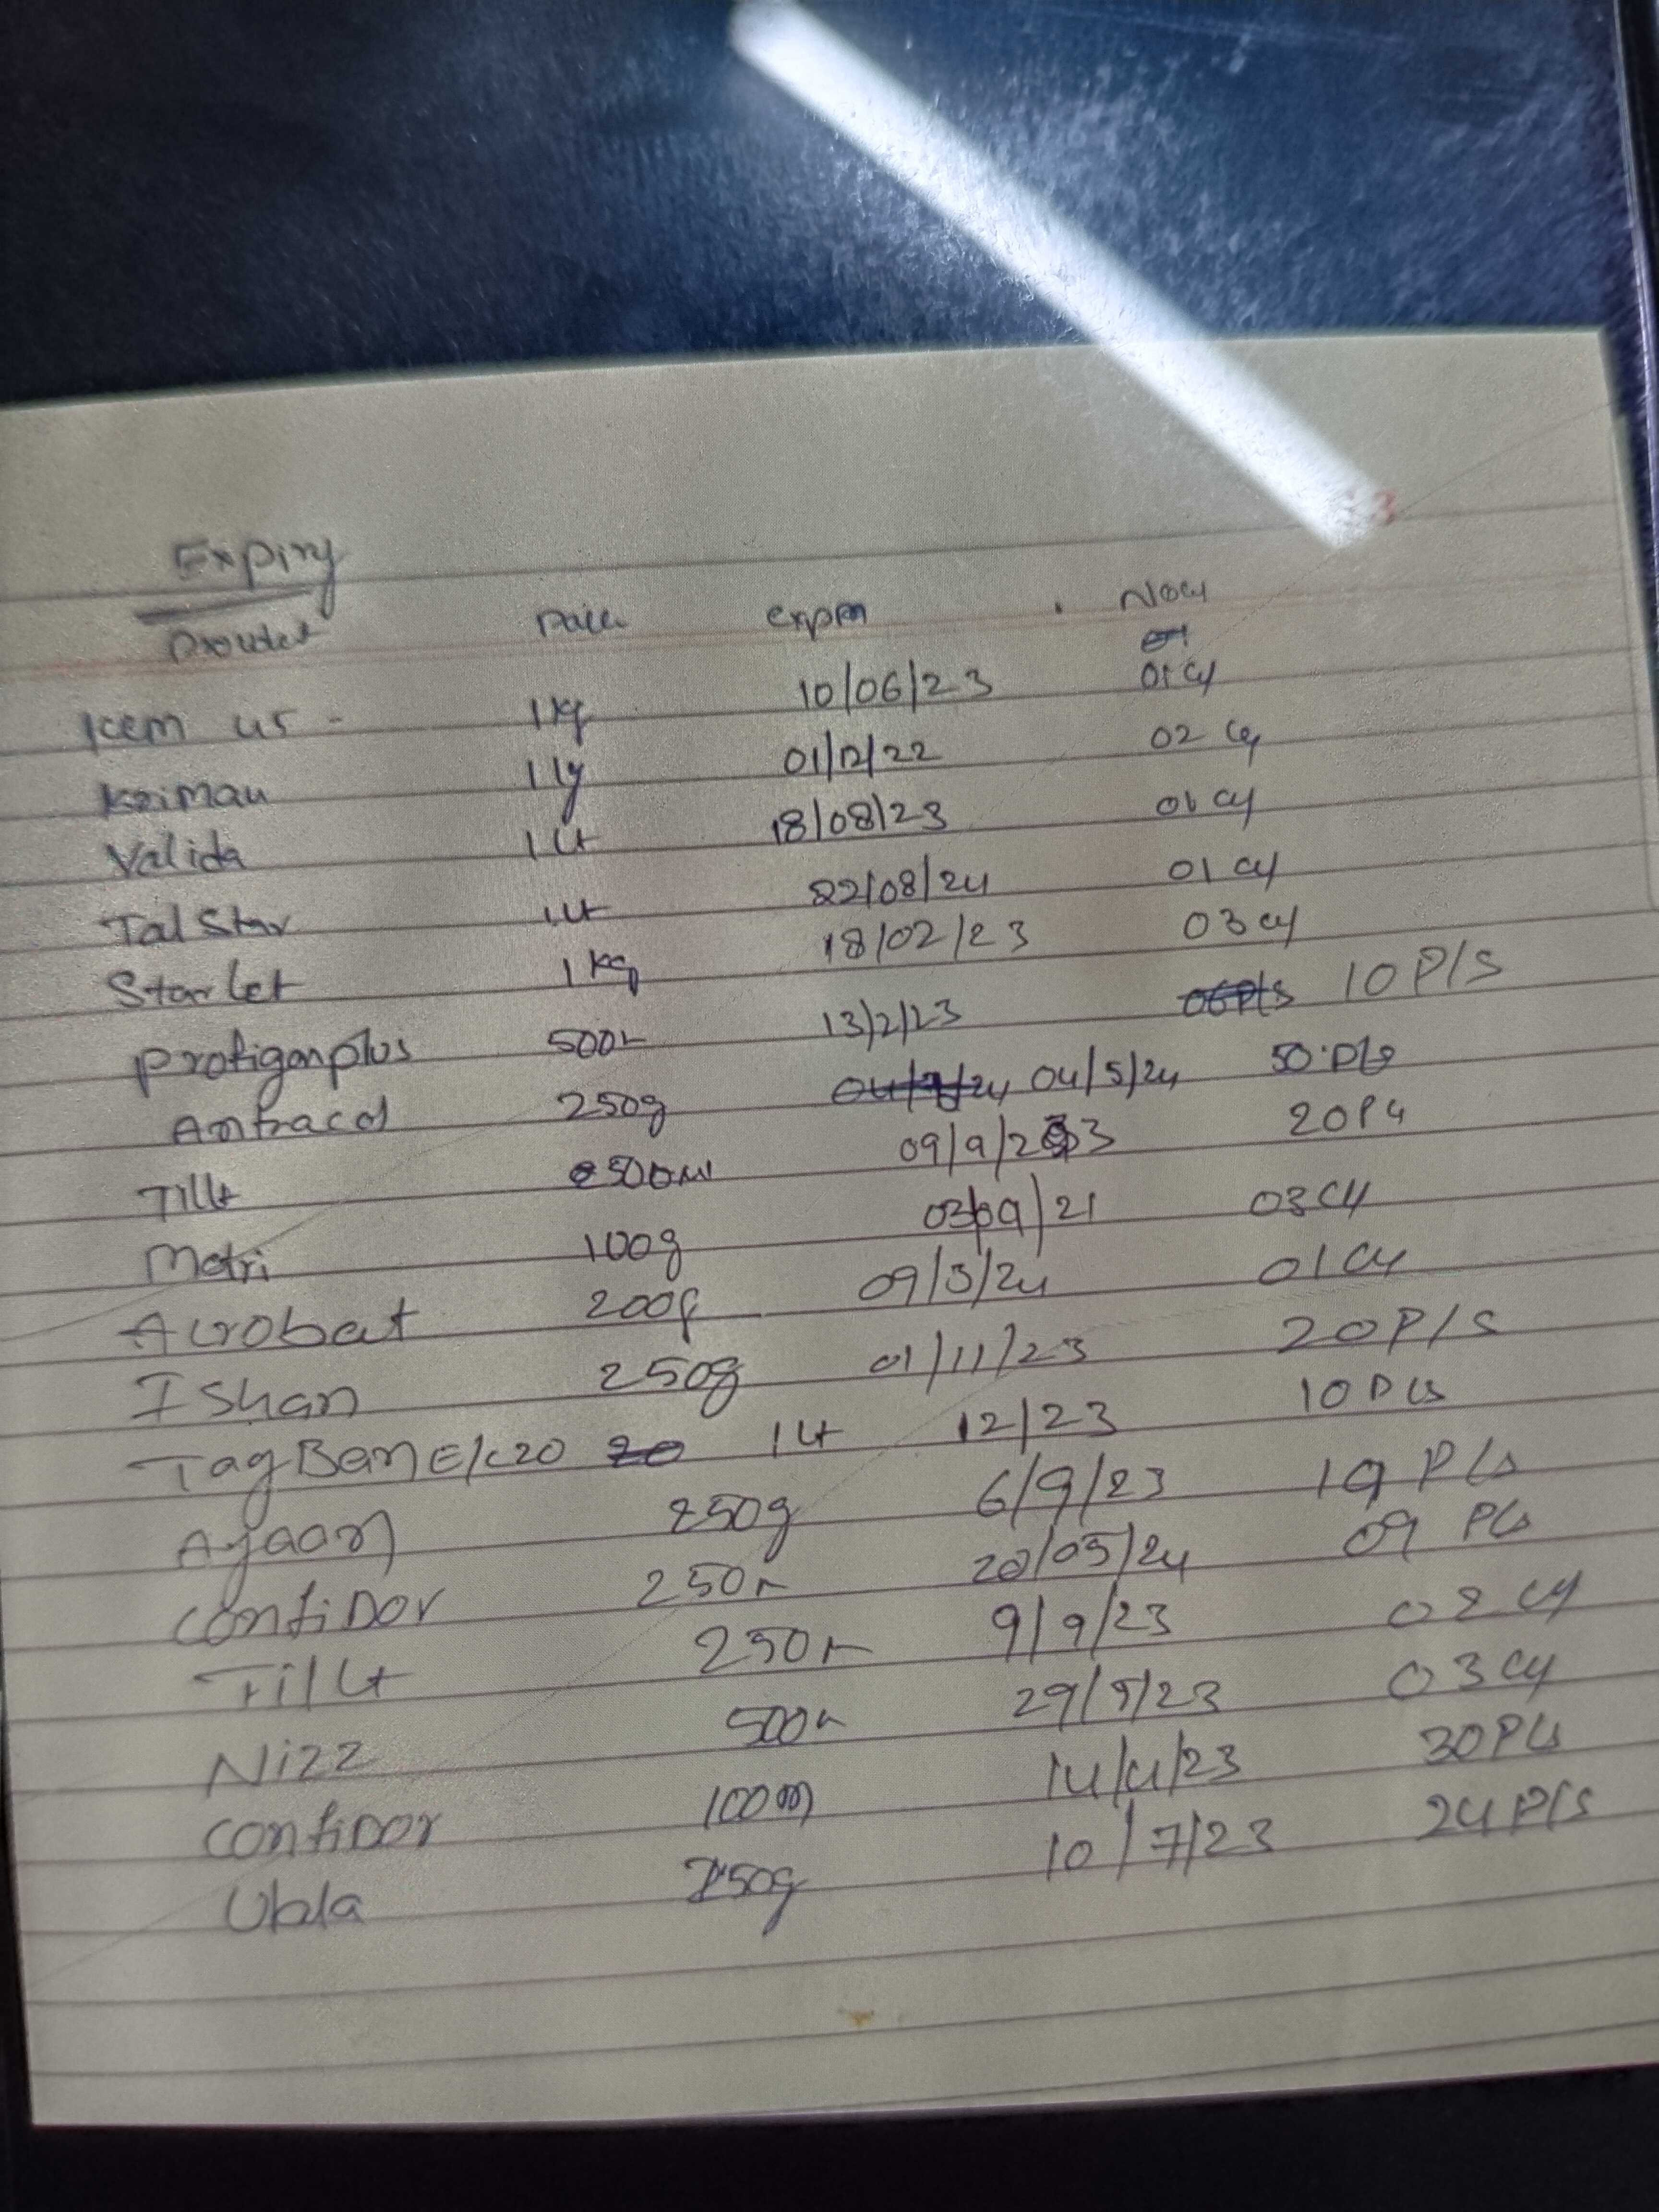 Expiry
Proudct Pack expm Nocy
Kem 45 - 1 kg 10/06/23 01 cy
Kriman 1 kg 01/12/22 02 cy
Valida 1 Lt 18/08/23 01 cy
Tal Star 1 Lt 22/08/24 01 cy
Starlet 1 kg 18/02/23 03 cy
profiganplus 500 13/2/23 06 P/s 10 P/s
Antracol 250g 04/5/24 50 P/s
Tillt 500ml 09/9/23 20 P
Metri 100g 03/09/21 03 cy
Acrobat 200g 09/3/24 01 cy
IShan 250g 01/11/23 20 P/s
Tag Ban E/c 20 20 1 Lt 12/23 10 P/s
Ajaan 250g 6/9/23 19 P/s
confiDor 250 20/05/24 09 P/s
Tillt 250 9/9/23 02 cy
Nizz 500 29/5/23 03 cy
confiDor 100m 14/4/23 30 P/s
Ulala 250g 10/7/23 24 P/s